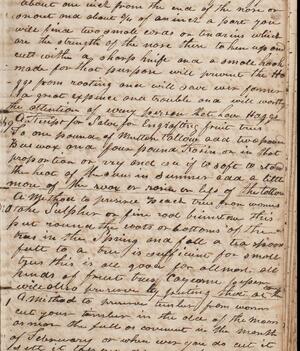 about one inch from the end of the nose or
about one third of an inch apart you
will find two small cords or tendons which
are the strength of the nose then taken up and
cut with a sharp knife and a small hook
made for that purpose will prevent the Ho
gs from rooting and will save every farmer
a great expence and trouble and will worth
the attention of every person that have Hoggs
A Receipt for Salve for Ingrafting fruit trees
To one pound of Mutton Tallow add two pounds
Bees wax and four pound Rosin or in that
proportion or try and see if to soft to stand
the heat of the sun in summer add a little
more of the wax or rosin or less of the tallow
A Method to prevent Peach trees from worms
Take Sulphur or fine rod brimstone this
put round the roots or bottoms of the
trees in the Spring and fall a tea spoon
full to a tree is sufficient for small
trees this is all good for all most all
kinds of fruit trees Cayenne pepper
will also preserve by putting that in the
A method to preserve timber from worms
cut your timber in the old of the moon
or near the full as convent in the month
of February or when ever you do cut it